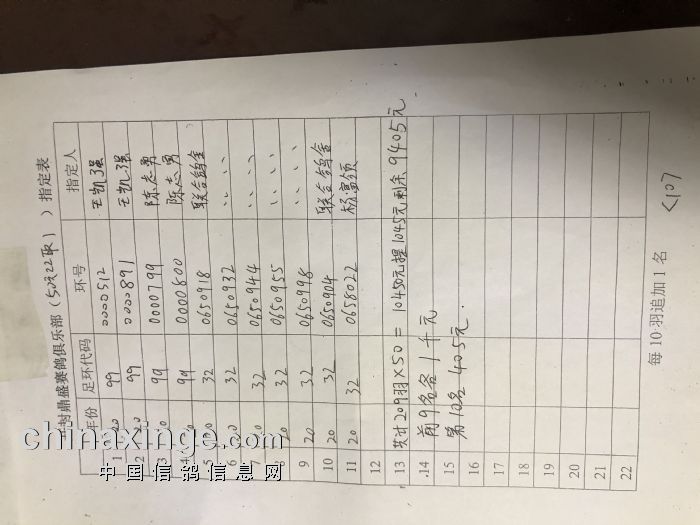 封鼎盛赛鸽俱乐部（50元22取1）指定表
年份 足环代码 环号 指定人
1 20 99 0000512 王凯强
2 20 99 0000891 王凯强
3 20 99 0000799 陈志勇
4 20 99 0000800 陈志勇
5 20 32 0650918 联合鸽舍
6 20 32 0650932 〃
7 20 32 0650944 〃
8 20 32 0650955 〃
9 20 32 0650998 〃
10 20 32 0650904 联合鸽舍
11 20 32 0658022 杨富领
12
13 共计209羽×50=10450元提1045元剩余9405元
14 前9名各1千元
15 第10名405元.
16
17
18
19
20
21
22
每10羽追加1名
<10>
chinaxinge.com
中国信鸽信息网